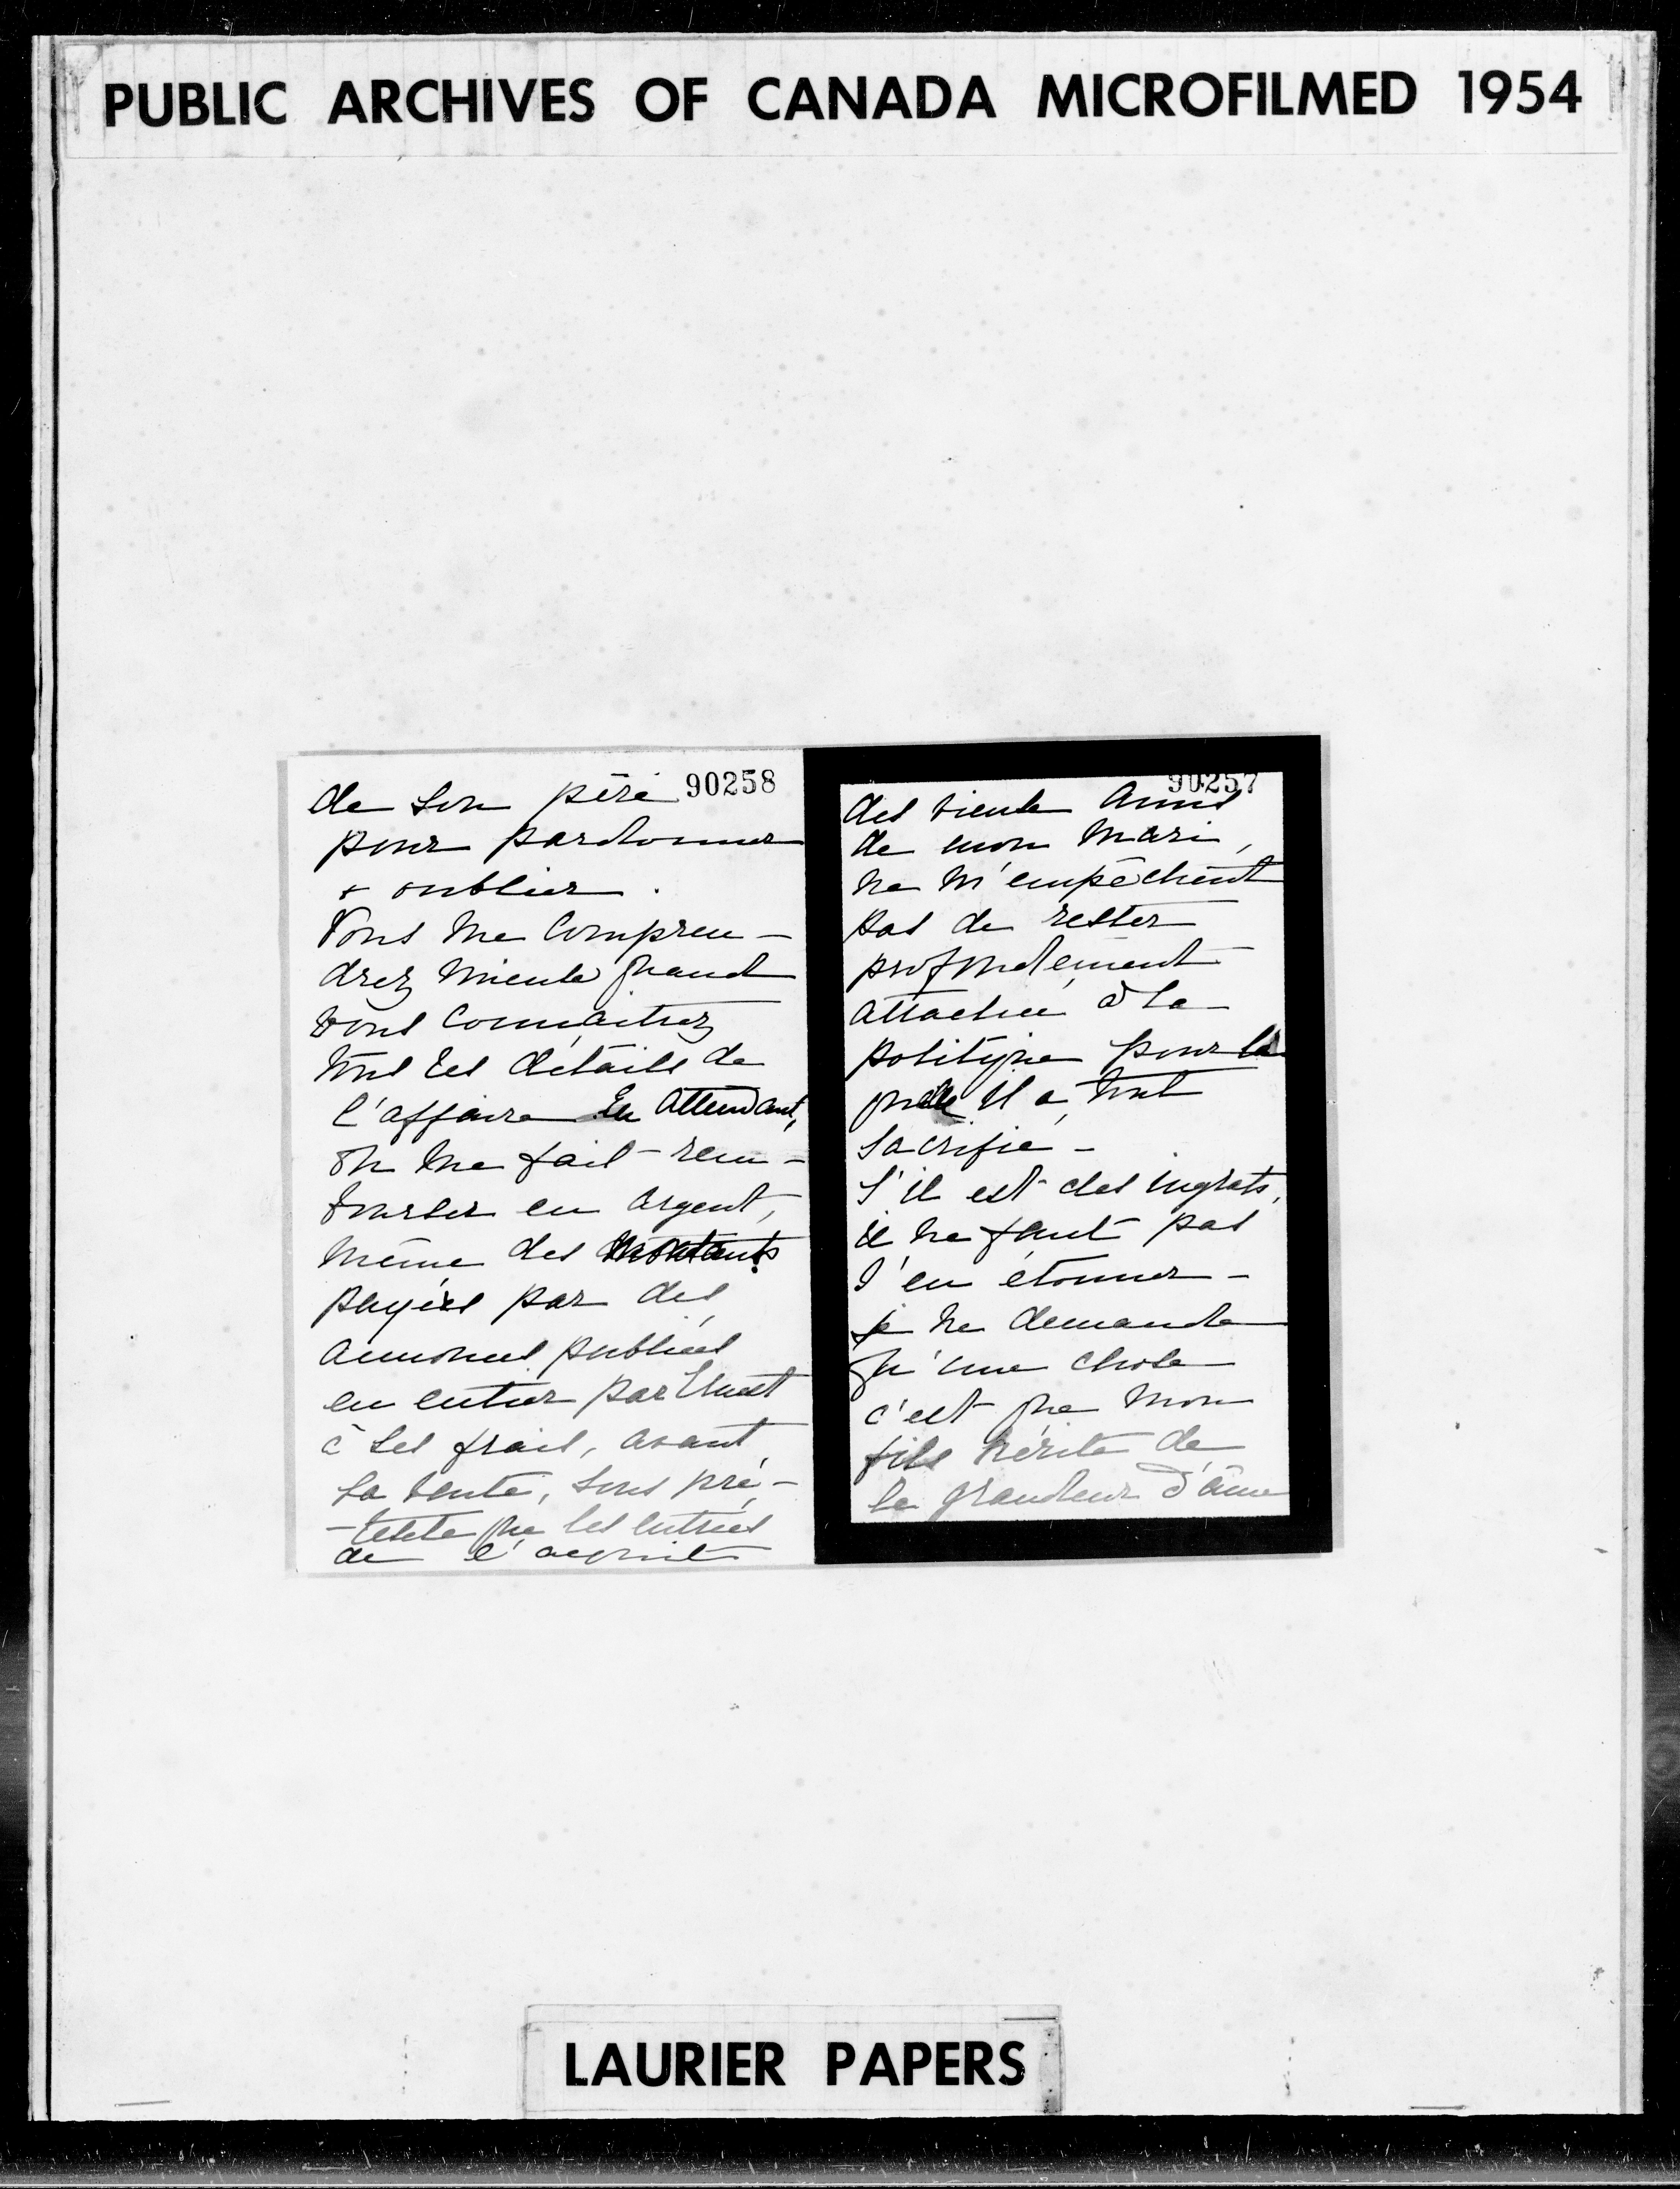 PUBLIC ARCHIVES OF CANADA MICROFILMED 1954
90258
de son père
pour pardonner
& oublier.
Vous me compren-
drez mieux quand
vous connaitrez
tous les détails de
l'affaire En attendant,
on me fait rem-
bourser en argent,
même des montants
payés par des
annonces publiées
en entier par Ernest
à ses frais, avant
la vente, sous pré-
-texte que les entrées
de l'acquit
90257
des vieux amis
de mon mari,
ne m'empêchent
pas de rester
profondément
attachée à la
politique pour la
quelle il a tout
sacrifié -
S'il est des ingrats,
il ne faut pas
s'en étonner -
je ne demande
qu'une chose
c'est que mon
fils hérite de
la grandeur d'âme
LAURIER PAPERS